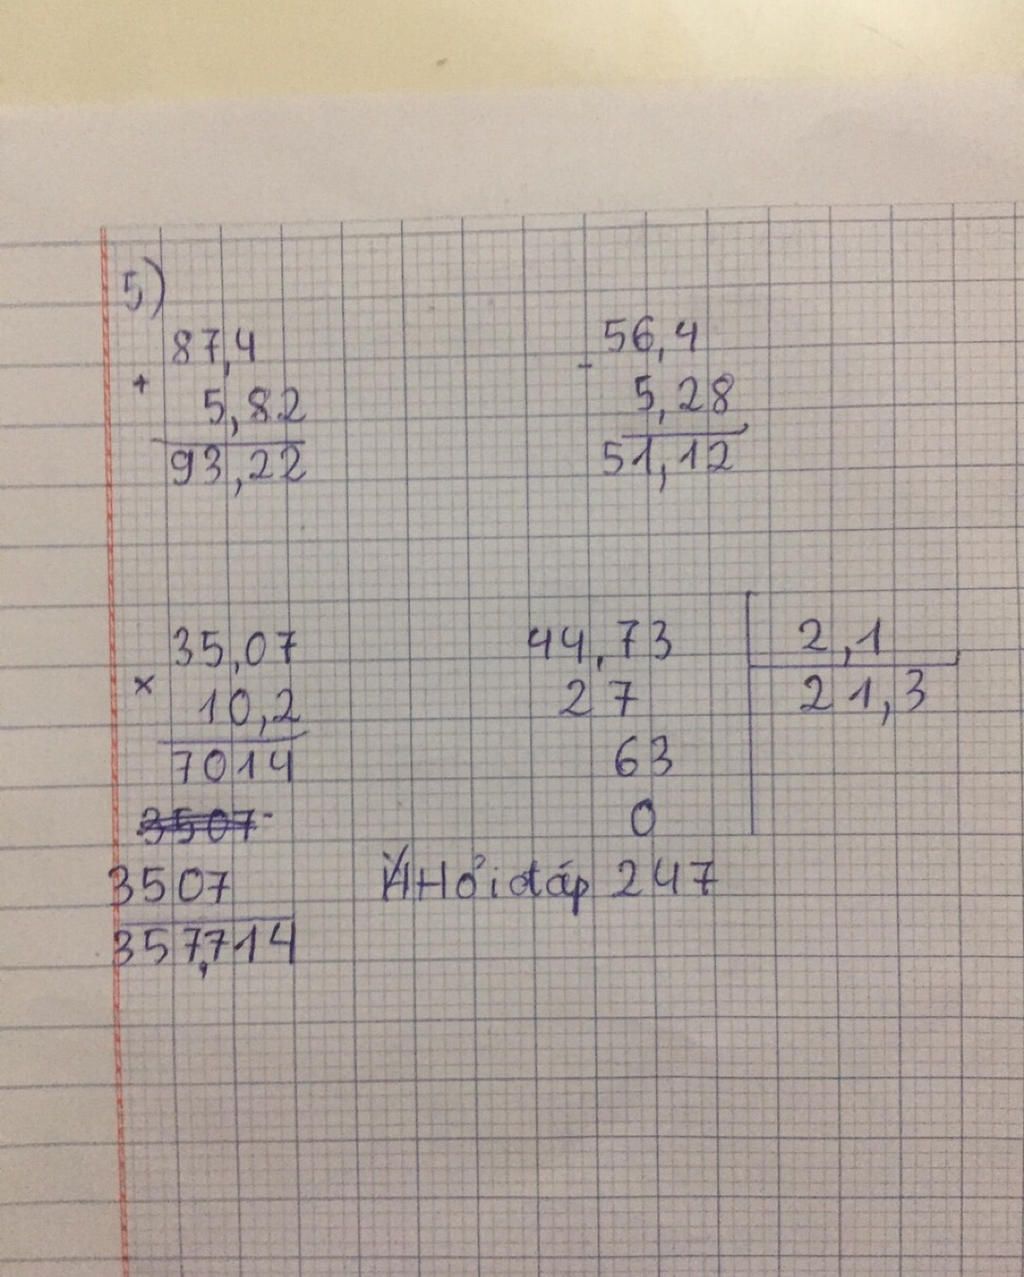 5)
87,4
+
5,82
93,22
56,4
-
5,28
51,12
35,07
×
10,2
7014
3507
3507
357,714
44,73 2,1
27 21,3
63
0
Hỏi đáp 247